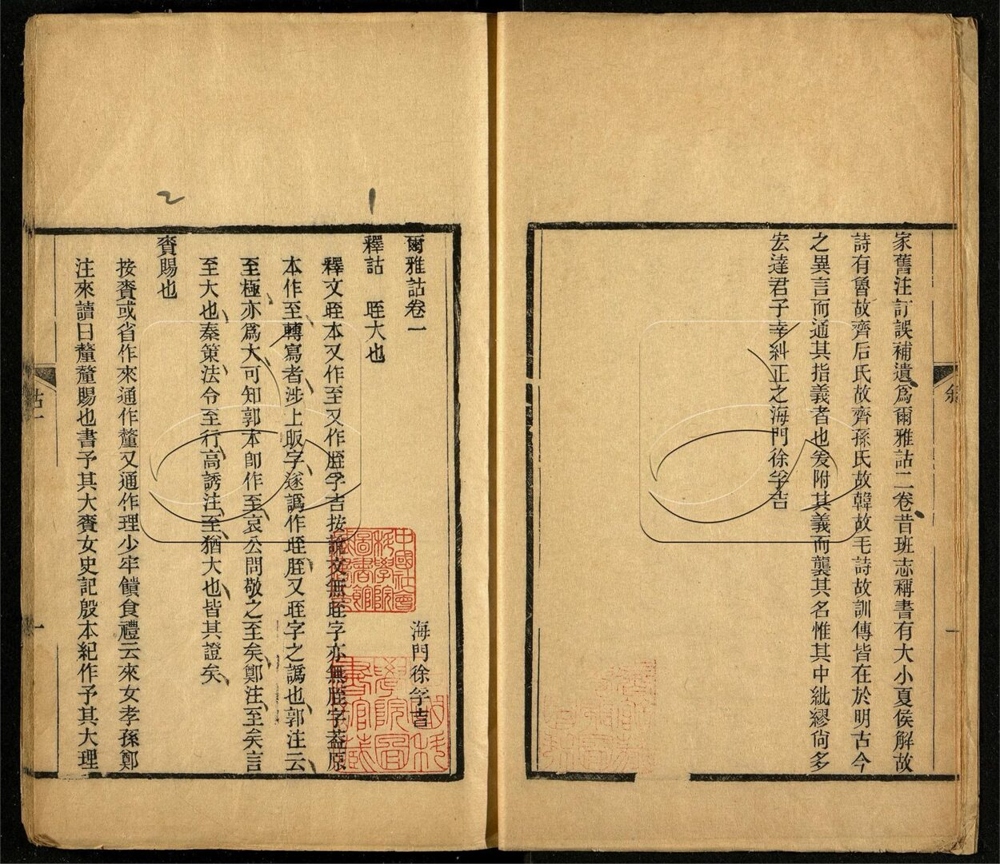 家舊注訂誤補遺爲爾雅詁二卷昔班志稱書有大小夏侯解故
詩有魯故齊后氏故齊孫氏故韓故毛詩故訓傳皆在於明古今
之異言而通其指義者也爰附其義而襲其名惟其中紕繆尙多
宏達君子幸糾正之海門徐孚吉
叙
一
1
2
爾雅詁卷一
海門徐孚吉
釋詁 晊大也
釋文晊本又作至又作胵孚吉按說文無晊字亦無胵字葢原
本作至轉寫者涉上昄字遂譌作晊胵又晊字之譌也郭注云
至極亦爲大可知郭本卽作至哀公問敬之至矣鄭注至矣言
至大也秦策法令至行高誘注至猶大也皆其證矣
賚賜也
按賚或省作來通作釐又通作理少牢饋食禮云來女孝孫鄭
注來讀曰釐釐賜也書予其大賚女史記殷本紀作予其大理
詁一
一
中國社會
科學院
圖書館